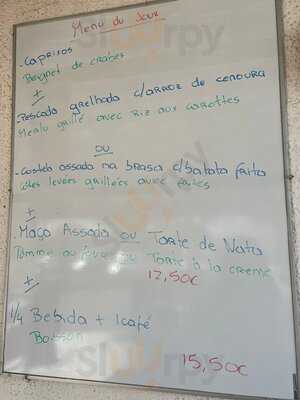 Menu du Jour
- Caprixos
Beignet de crabes
+
- Pescada grelhada c/arroz de cenoura
Merlu grillé avec Riz aux carottes
ou
- Costela assada na brasa c/batata frita
côtes levées grillées avec frites
+
Maça Assada ou Tarte de Nata
Pomme au four ou Tarte à la creme
12,50€
+
1/4 Bebida + 1café
Boisson
15,50€
Sluurpy